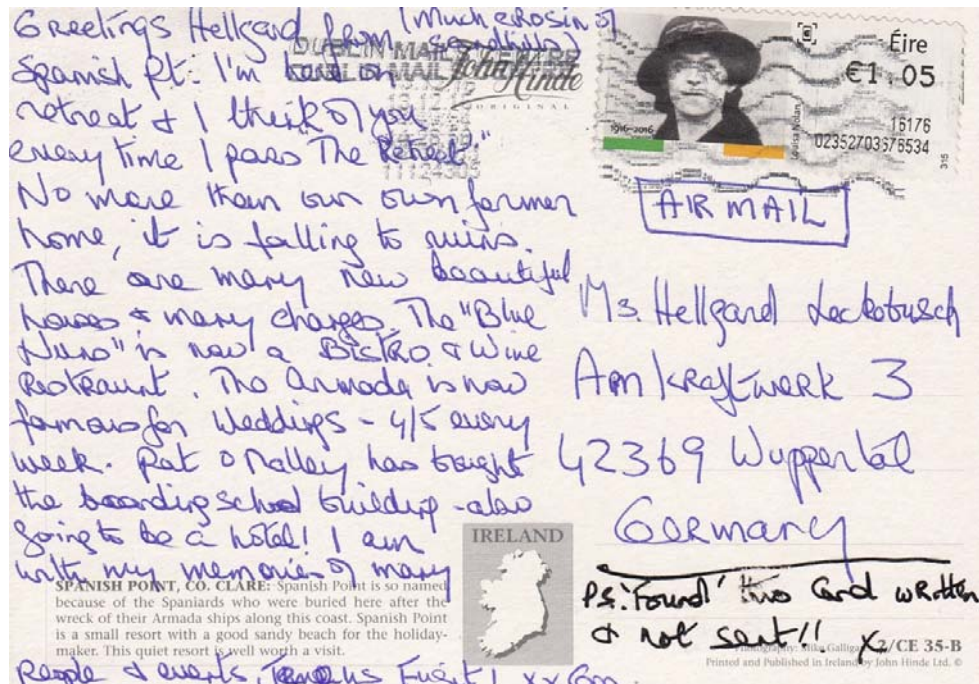 Greetings Hellgard from (much erosin of
sandhills)
Spanish Pt. I'm here on
retreat & I think of you
every time I pass The Retreat"
No more than our own former
home, it is falling to ruins.
There are many new beautiful
houses & many changes. The "Blue
Nuns" is now a Bistro & Wine
Restraunt. The Armada is now
famous for Weddings - 4/5 every
week. Pat O Malley has bought
the boarding school building - also
going to be a hotel! I am
with my memories of many
people & events,
xx
DUBLIN MAIL CENTRE
John Hinde
ORIGINAL
Éire
€1.05
16176
02352703676534
315
1916-2016
Louisa Nolan
AIR MAIL
Ms. Hellgard Leckebusch
Am Kraftwerk 3
42369 Wuppertal
Germany
P.S. 'Found' this Card written
& not sent!! x
IRELAND
SPANISH POINT, CO. CLARE: Spanish Point is so named
because of the Spaniards who were buried here after the
wreck of their Armada ships along this coast. Spanish Point
is a small resort with a good sandy beach for the holiday-
maker. This quiet resort is well worth a visit.
Photography: Mike Galligan 2/CE 35-B
Printed and Published in Ireland by John Hinde Ltd. ©